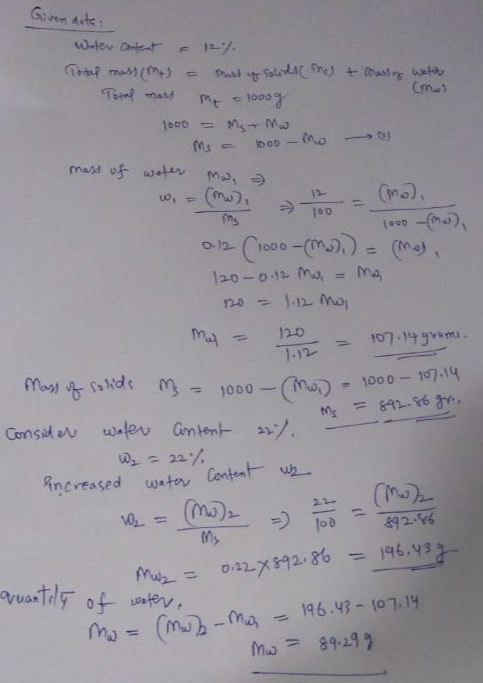 Given data:
Water Content = 12%.
Total mass (Mt) = mass of solids (Ms) + mass of water (Mw)
Total mass Mt = 1000g
1000 = Ms + Mw
Ms = 1000 - Mw → (1)
mass of water Mw1 ⇒
w1 = (Mw)1 / Ms ⇒ 12/100 = (Mw)1 / 1000 - (Mw)1
0.12 (1000 - (Mw)1) = (Mw)1
120 - 0.12 Mw1 = Mw1
120 = 1.12 Mw1
Mw1 = 120 / 1.12 = 107.14 grams.
Mass of solids Ms = 1000 - (Mw1) = 1000 - 107.14
Ms = 892.86 gr.
Consider water Content 22%.
W2 = 22%.
Increased water Content w2
w2 = (Mw)2 / Ms ⇒ 22/100 = (Mw)2 / 892.86
Mw2 = 0.22 X 892.86 = 196.43 g
quantity of water,
Mw = (Mw)2 - Mw1 = 196.43 - 107.14
Mw = 89.29 g